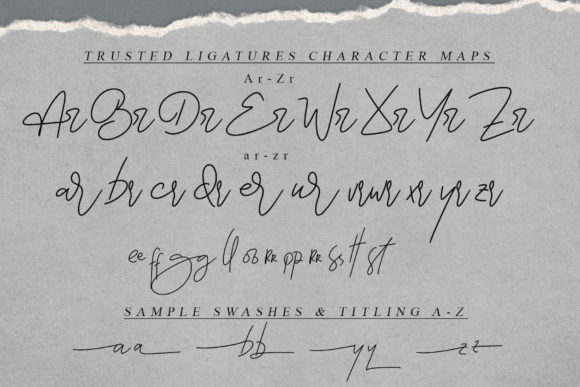 TRUSTED LIGATURES CHARACTER MAPS
Ar-Zr
Ar Br Dr Er Wr Xr Yr Zr
ar-zr
ar br cr dr er ur vr wr xr yr zr
ee ff gg ll oo pp ss tt st
SAMPLE SWASHES & TITLING A-Z
aa bb yy zz